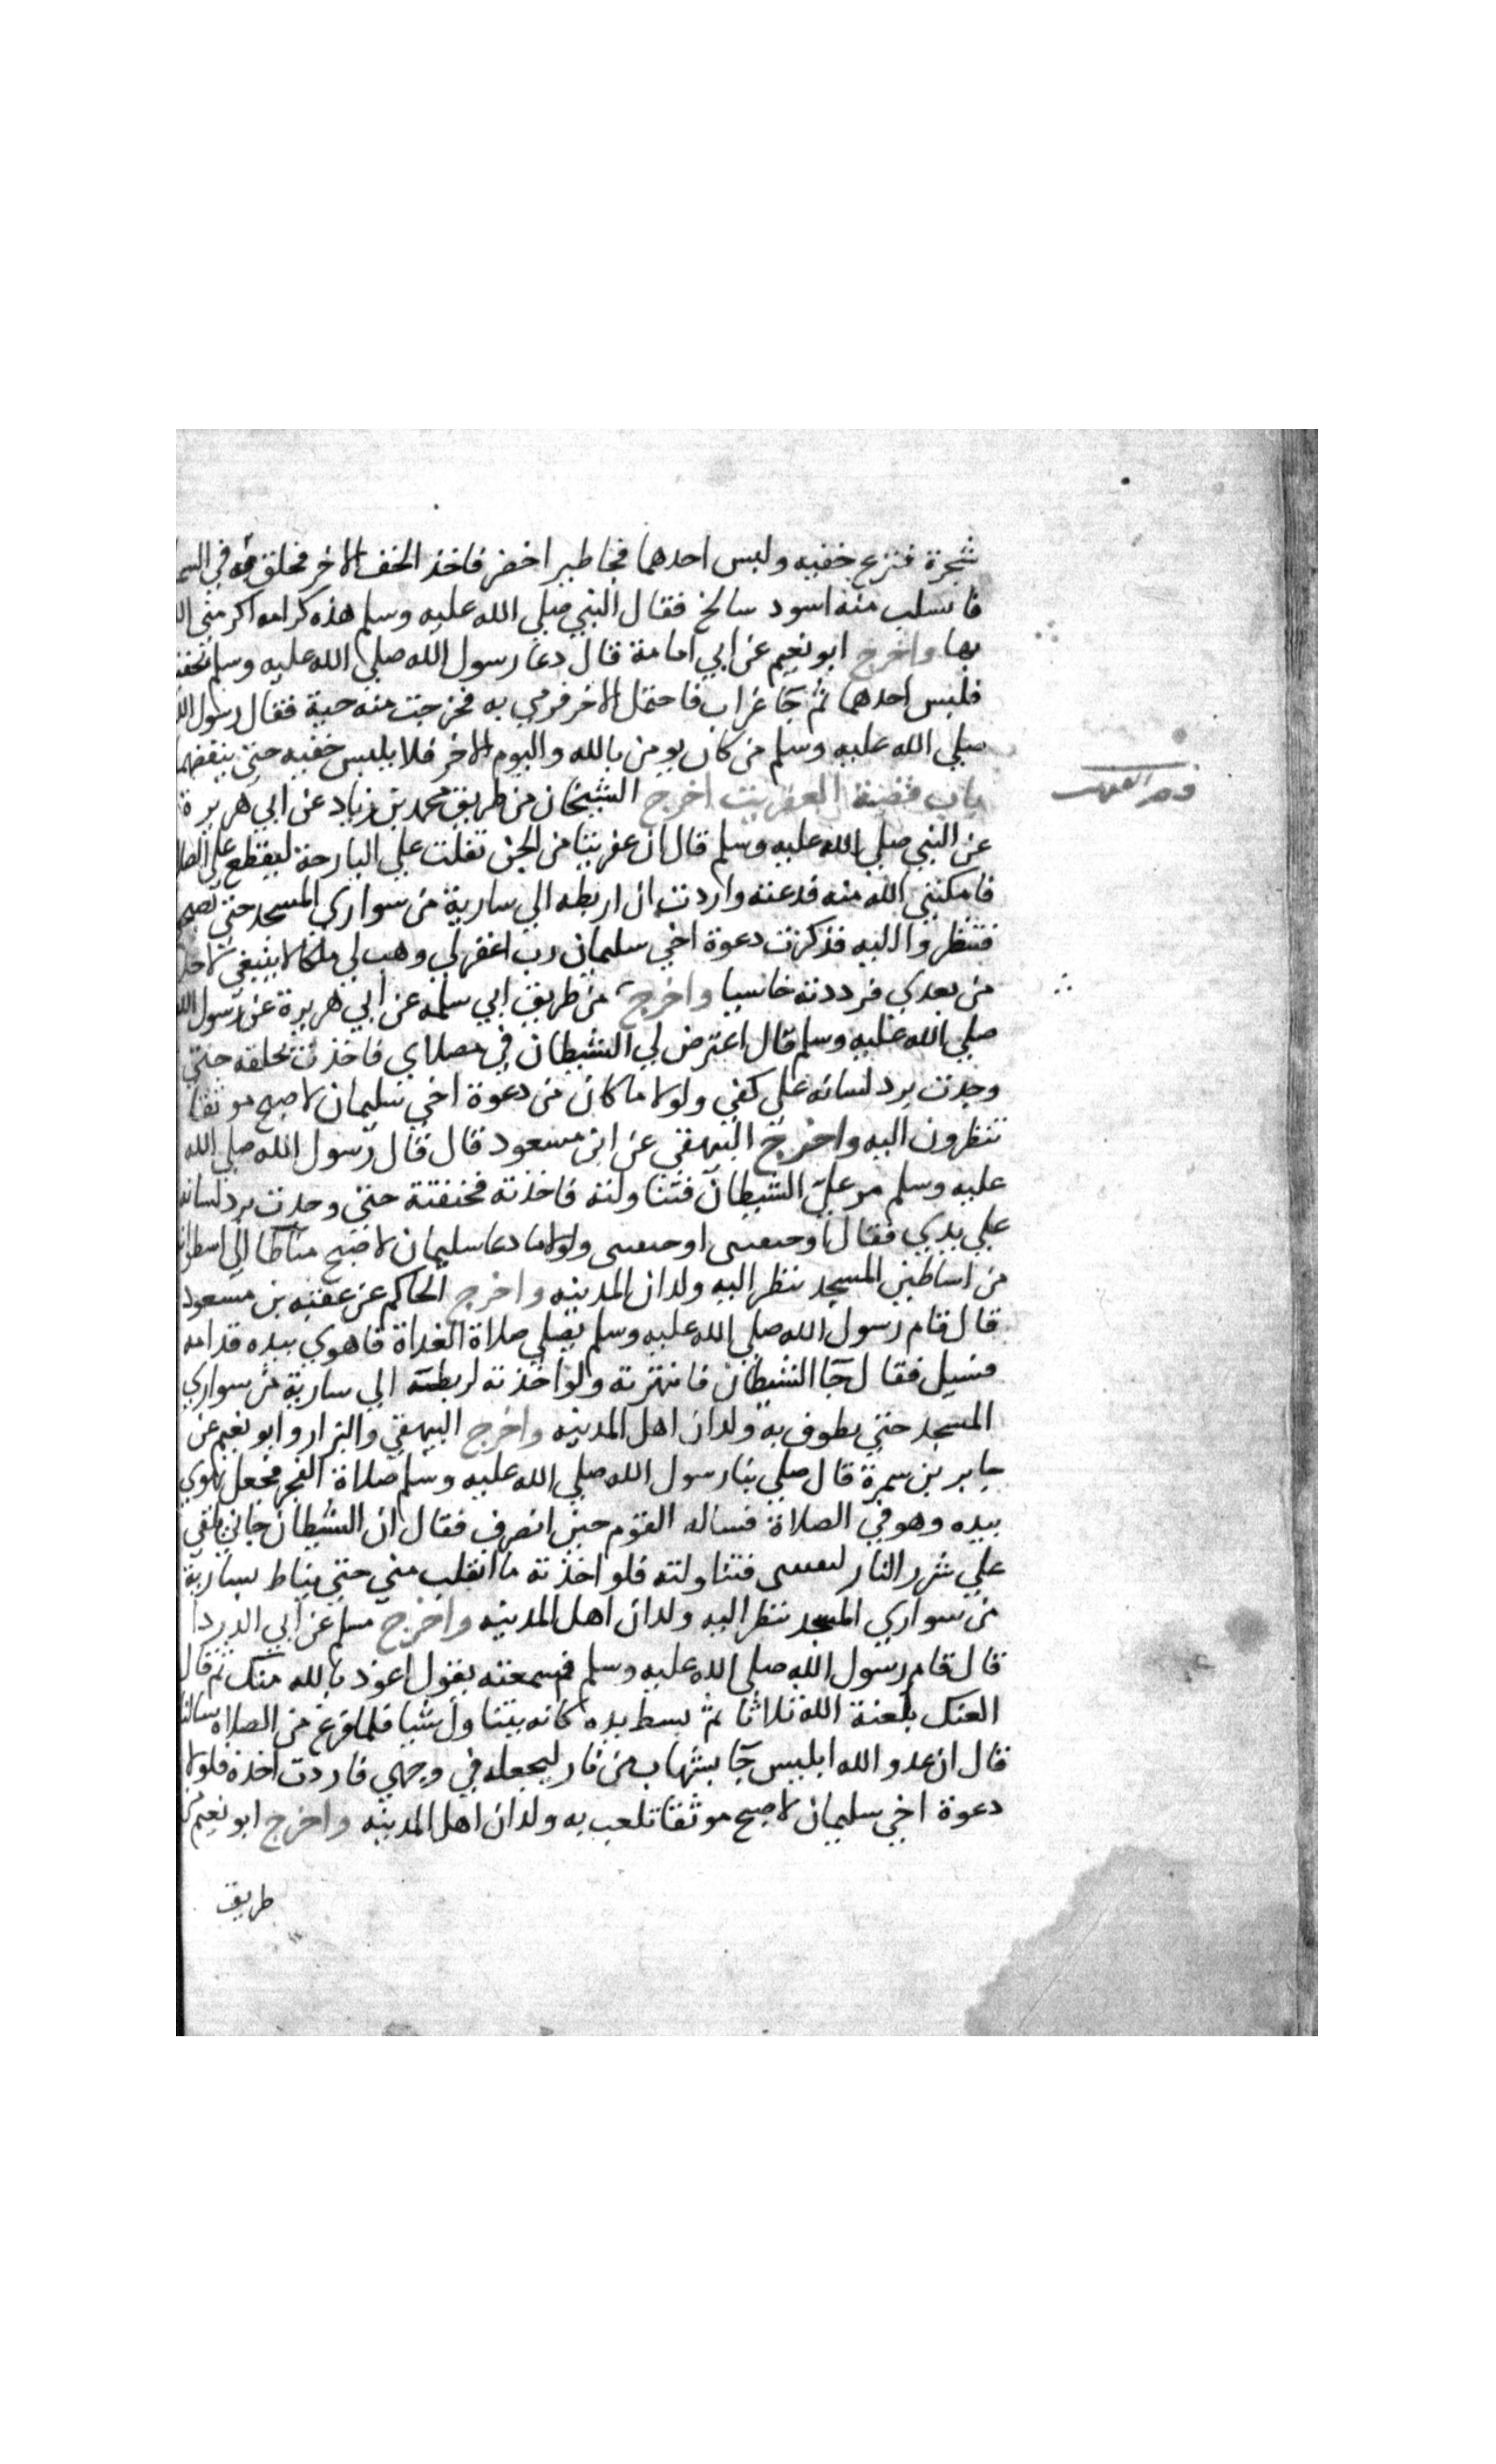 شجرة فنزع خفيه ولبس احدهما فجا طير اخضر فاخذ الخف الاخر فحلق به في السما
فانسلب منه اسود سالخ فقال النبي صلي الله عليه وسلم هذه كرامه اكرمني ال
بها واخرج ابو نعيم عن ابي امامة قال دعا رسول الله صلي الله عليه وسلم بخفيه
فلبس احدهما ثم جآ غراب فاحتمل الاخر فرمي به فخرجت منه حية فقال رسول الله
صلي الله عليه وسلم من كان يومن بالله واليوم الاخر فلا يلبس خفيه حتي ينفضهما
باب قصة العفريت اخرج الشيخان من طريق محمد بن زياد عن ابي هريرة
عن النبي صلي الله عليه وسلم قال ان عفريتا من الجن تفلت علي البارحة ليقطع علي الصلا
فامكنني الله منه فدعته واردت ان اربطه الي سارية من سواري المسجد حتي تصبح
فتنظروا اليه فذكرت دعوة اخي سليمان رب اغفر لي وهب لي ملكا لا ينبغي لاحد
من بعدي فرددته خاسيا واخرج من طريق ابي سلمه عن ابي هريرة عن رسول الله
صلي الله عليه وسلم قال اعترض لي الشيطان في مصلاي فاخذت بحلقه حتي
وجدت برد لسانه علي كفي ولولا ما كان من دعوة اخي سليمان لاصبح موثقا
تنظرون اليه واخرج البيهقي عن ابن مسعود قال قال رسول الله صلي الله
عليه وسلم مر علي الشيطان فتناولته فاخذته فخنقته حتي وجدت برد لسانه
علي يدي فقال اوجعتني اوجعتني ولولا ما دعا سليمان لاصبح مناطا الي اسطوانه
من اساطين المسجد ينظر اليه ولدان المدينه واخرج الحاكم عن عقبه بن مسعود
قال قام رسول الله صلي الله عليه وسلم يصلي صلاة الغداة فاهوي بيده قدامه
فسيل فقال جآ الشيطان فانتهرته ولو اخذته لربطته الي سارية من سواري
المسجد حتي يطوف به ولدان اهل المدينه واخرج البيهقي والبزار وابو نعيم عن
جابر بن سمرة قال صلي بنا رسول الله صلي الله عليه وسلم صلاة الفجر فجعل يهوي
بيده وهو في الصلاة فساله القوم حين انصرف فقال ان الشيطان جاني يلقي
علي شرر النار ليفتني فتناولته فلو اخذته ما انفلت مني حتي يناط بسارية
من سواري المسجد ينظر اليه ولدان اهل المدينه واخرج مسلم عن ابي الدردا
قال قام رسول الله صلي الله عليه وسلم فسمعته يقول اعوذ بالله منك ثم قال
العنك بلعنة الله ثلاثا ثم بسط يده كانه يتناول شيا فلما فرغ من الصلاه سالنا
قال ان عدو الله ابليس جآ بشهاب من نار ليجعله في وجهي فاردت اخذه فلولا
دعوة اخي سليمان لاصبح موثقا تلعب به ولدان اهل المدينه واخرج ابو نعيم من
طريق